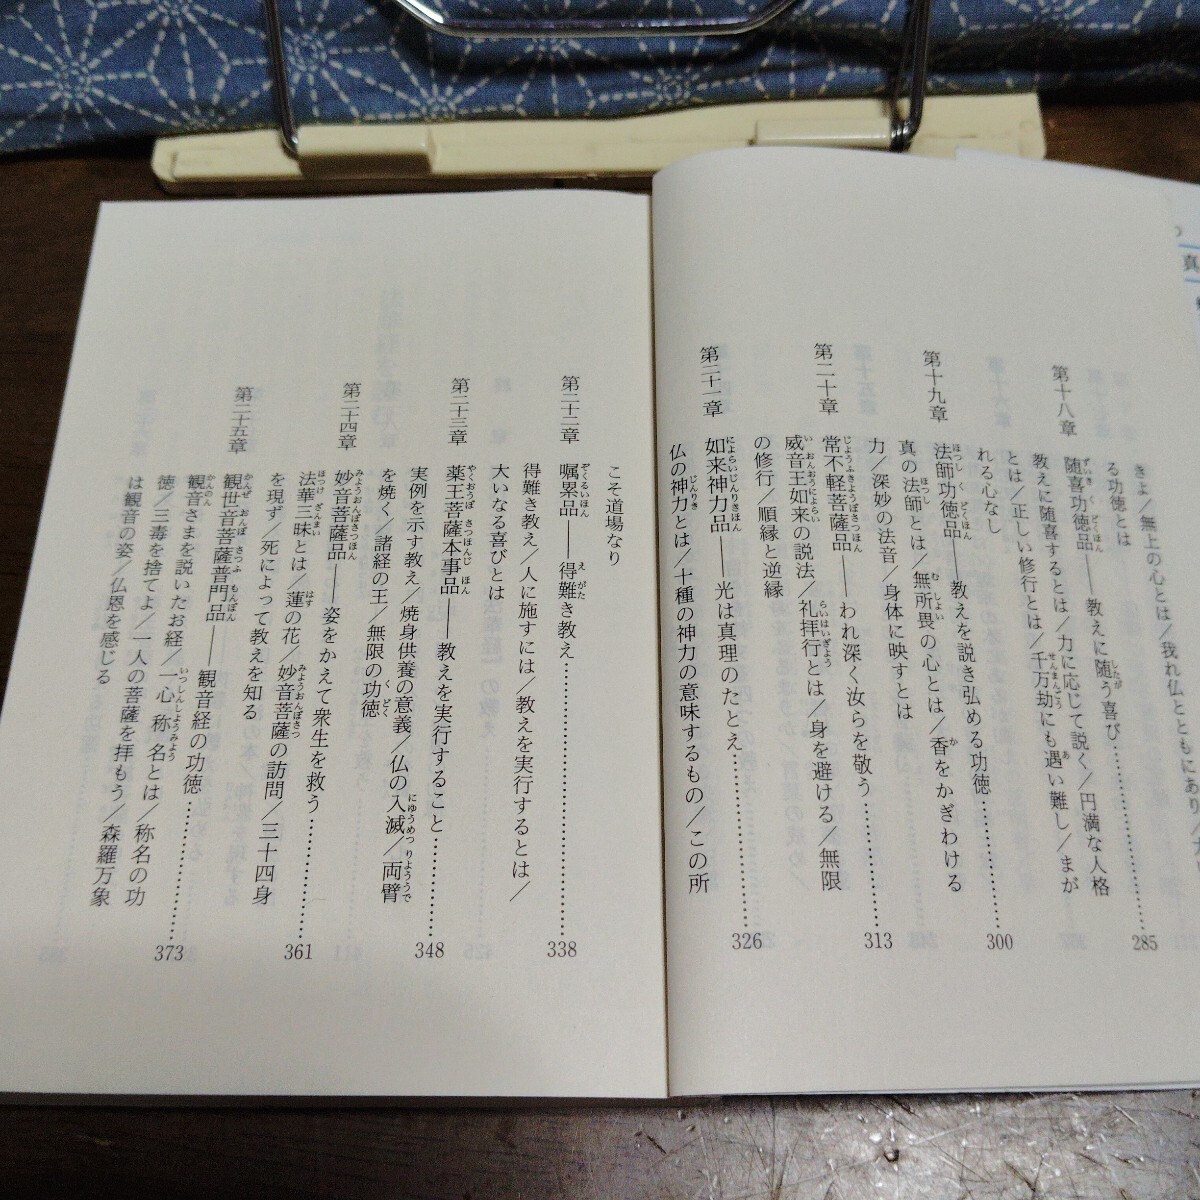 きよ／無上の心とは／我れ仏とともにあり／
る功徳とは
第十八章
随喜功徳品――教えに随う喜び…………285
教えに随喜するとは／力に応じて説く／円満な人格
とは／正しい修行とは／千万劫にも遇い難し／まが
れる心なし
第十九章
法師功徳品――教えを説き弘める功徳…………300
真の法師とは／無所畏の心とは／香をかぎわける
力／深妙の法音／身体に映すとは
第二十章
常不軽菩薩品――われ深く汝らを敬う…………313
威音王如来の説法／礼拝行とは／身を避ける／無限
の修行／順縁と逆縁
第二十一章
如来神力品――光は真理のたとえ…………326
仏の神力とは／十種の神力の意味するもの／この所
こそ道場なり
第二十二章
嘱累品――得難き教え…………338
得難き教え／人に施すには／教えを実行するとは／
大いなる喜びとは
第二十三章
薬王菩薩本事品――教えを実行すること…………348
実例を示す教え／焼身供養の意義／仏の入滅／両臂
を焼く／諸経の王／無限の功徳
第二十四章
妙音菩薩品――姿をかえて衆生を救う…………361
法華三昧とは／蓮の花／妙音菩薩の訪問／三十四身
を現ず／死によって教えを知る
第二十五章
観世音菩薩普門品――観音経の功徳…………373
観音さまを説いたお経／一心称名とは／称名の功
徳／三毒を捨てよ／一人の菩薩を拝もう／森羅万象
は観音の姿／仏恩を感じる